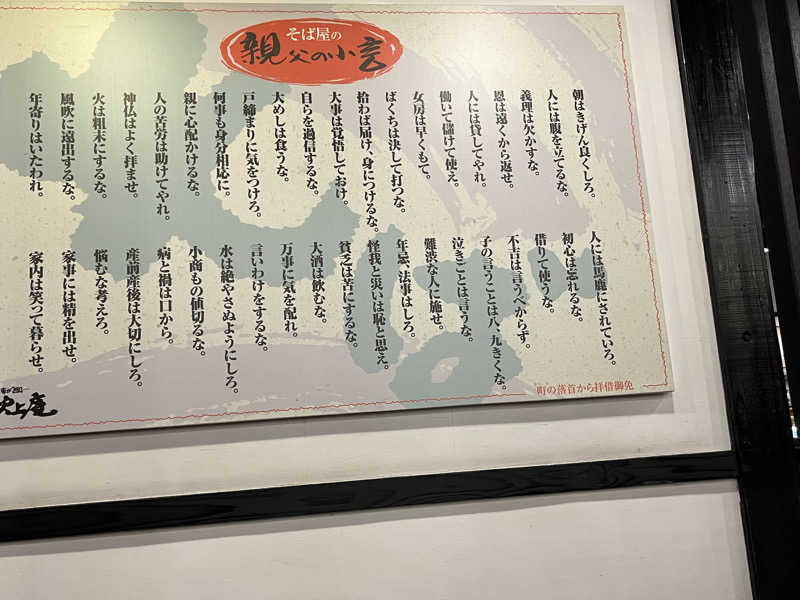 そば屋の
親父の小言
朝はきげん良くしろ。
人には腹を立てるな。
義理は欠かすな。
恩は遠くから返せ。
人には貸してやれ。
働いて儲けて使え。
女房は早くもて。
ばくちは決して打つな。
拾わば届け、身につけるな。
大事は覚悟しておけ。
自らを過信するな。
大めしは食うな。
戸締まりに気をつけろ。
何事も身分相応に。
親に心配かけるな。
人の苦労は助けてやれ。
神仏はよく拝ませ。
火は粗末にするな。
風吹に遠出するな。
年寄りはいたわれ。
人には馬鹿にされていろ。
初心は忘れるな。
借りて使うな。
不吉は言うべからず。
子の言うことは八、九きくな。
泣きごとは言うな。
難渋な人に施せ。
年忌、法事はしろ。
怪我と災いは恥と思え。
貧乏は苦にするな。
大酒は飲むな。
万事に気を配れ。
言いわけをするな。
水は絶やさぬようにしろ。
小商もの値切るな。
病と禍は口から。
産前産後は大切にしろ。
悩むな考えろ。
家事には精を出せ。
家内は笑って暮らせ。
町の落首から拝借御免